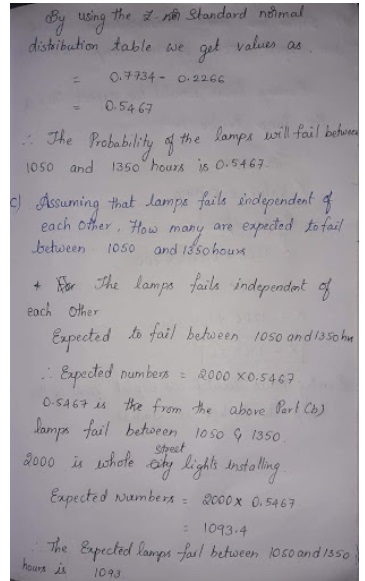 By using the Z Standard normal
distribution table we get values as
= 0.7734 - 0.2266
= 0.5467
∴ The Probability of the lamps will fail between
1050 and 1350 hours is 0.5467.
c) Assuming that lamps fails independent of
each other. How many are expected to fail
between 1050 and 1350 hours
* The lamps fails independent of
each other
Expected to fail between 1050 and 1350 hr
∴ Expected numbers = 2000 x 0.5467
0.5467 is the from the above Part (b)
lamps fail between 1050 & 1350.
2000 is whole street lights installing.
Expected Numbers = 2000 x 0.5467
= 1093.4
∴ The Expected lamps fail between 1050 and 1350
hours is 1093